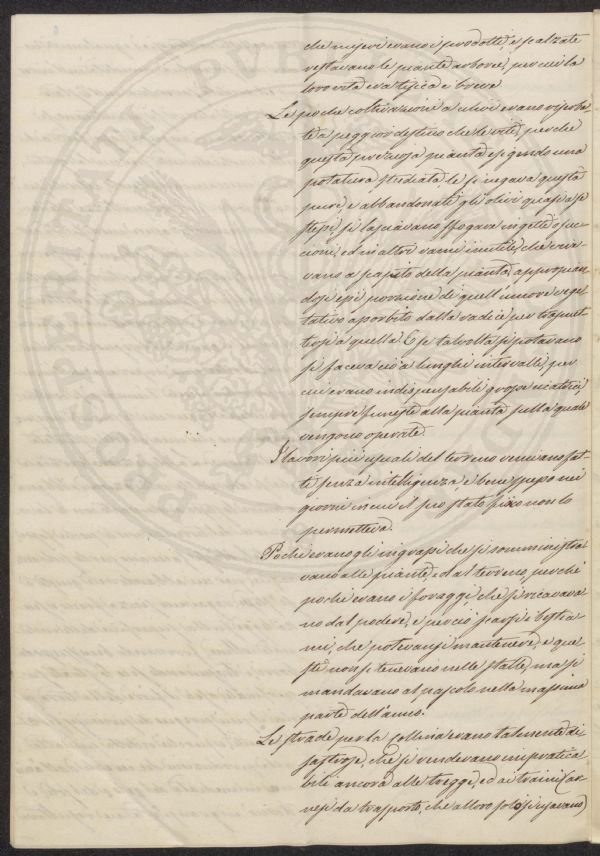 che miseri erano i prodotti, e scalzate
restavano le piante arboree, per cui la
loro vita era tisica e breve.
Le poche coltivazioni a ulivi erano riserba
te a peggior destino che le viti, perché
questa preziosa pianta esigendo una
potatura studiata le si negava questa
pure, e abbandonati gli olivi quasi a se
stessi, si lasciavano sfogare in getti, o suc
cioni, ed in altri rami inutili, che cre
vano a scapito della pianta, approprian
dosi essi porzione di quell'umore vege
tativo assorbito dalla radice per trasmet
tersi a quella. E se talvolta si potavano
si faceva ciò a lunghi intervalli, per
cui erano indispensabili grosse ucature,
sempre funeste alla pianta sulla quale
vengono operate.
I lavori più usuali del terreno venivano fat
ti senza intelligenza, e bene spesso nei
giorni in cui il suo stato fisico non lo
permetteva.
Pochi erano gl'ingrassi che si somministra
vano alle piante, ed al terreno, perché
pochi erano i foraggi che si ricavava
no dal podere, e perciò scarsi i bestia
mi, che potevansi mantenere, e que
sti non si tenevano nelle stalle, ma si
mandavano al pascolo nella massima
parte dell'anno.
Le strade per la collina erano talmente di
sastrose, che si rendevano impratica
bili ancora alle tregge, ed ai traini (ar
nesi da trasporto, che allora solo si usavano)